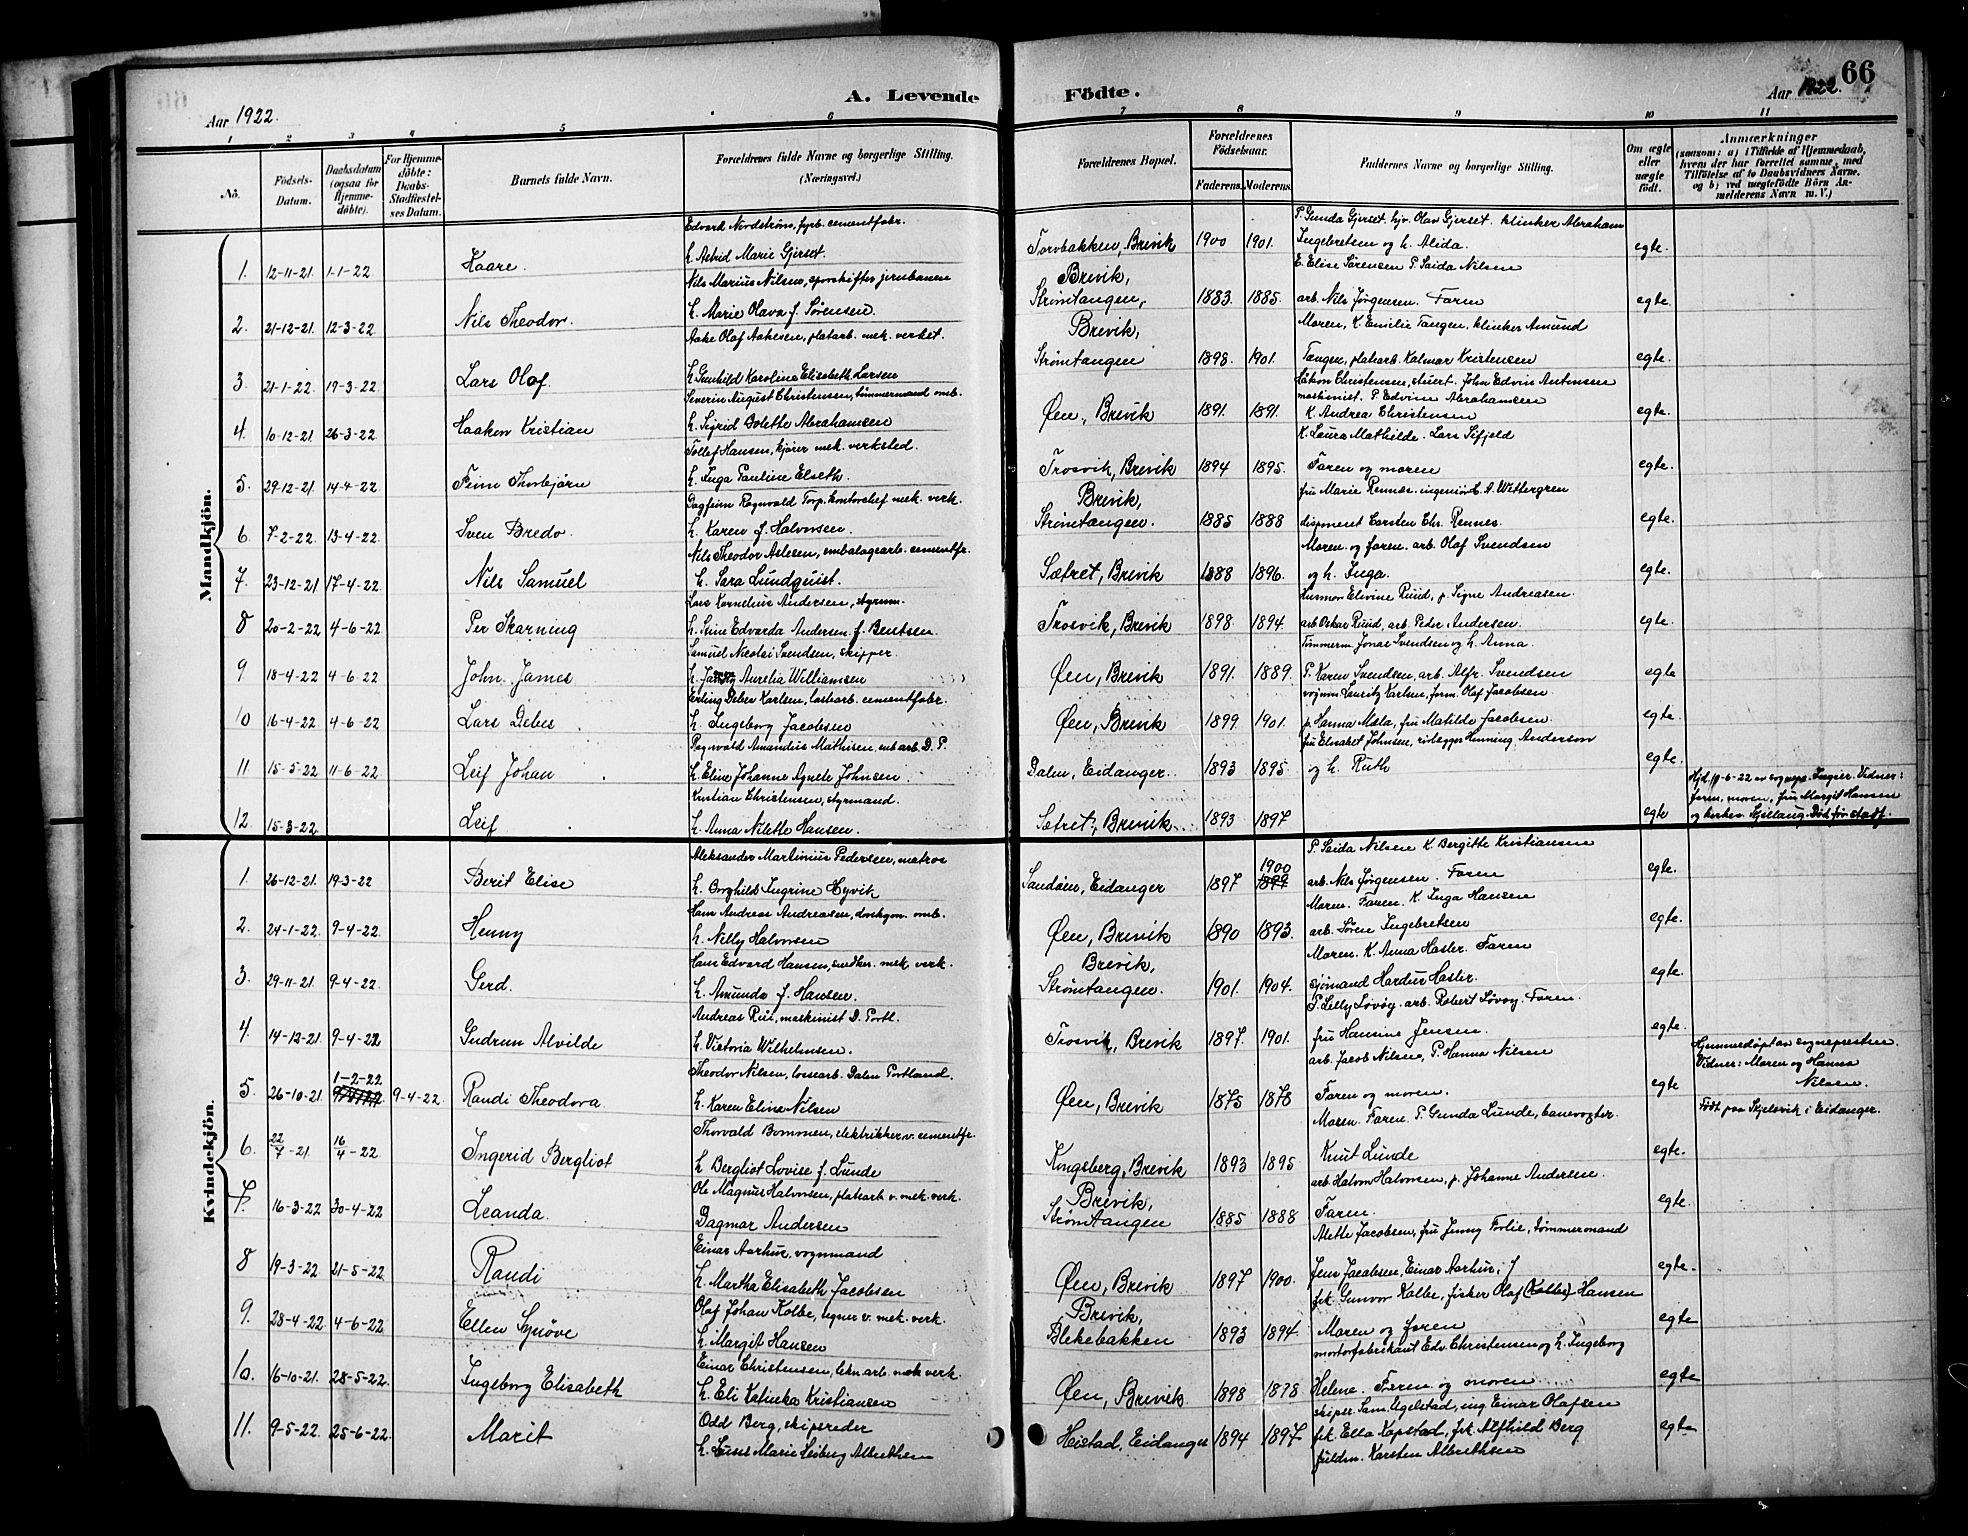 66
A. Levende Födte.
Aar 1922.
Aar 1922.
1 2 3 4 5 6 7 8 9 10 11
No.
Födsels-Datum.
Daabsdatum (ogsaa for Hjemmedöbte).
For Hjemmedöbte: Daabs-Stadfæstelses Datum.
Barnets fulde Navn.
Forældrenes fulde Navne og borgerlige Stilling.
(Næringsvei.)
Forældrenes Bopæl.
Forældrenes Födselsaar.
Faderens. Moderens.
Faddernes Navne og borgerlige Stilling.
Om ægte eller uægte födt.
Anmærkninger
(saasom: a) i Tilfælde af Hjemmedaab, hvem der har forrettet samme, med Tilföielse af to Daabsvidners Navne, og b) ved uægtefödte Börn Anmelderens Navn m. V.)
Mandkjön.
Edvard Nordstrøm, fyrb. cementfabr. P. Gunda Gjerset, hjv. Olav Gjerset. klinker Abraham
1. 12-11-21. 1-1-22. Kaare. h. Astrid Marie Gjerset. Torvbakken, Brevik 1900 1901. Ingebretsen og h. Alida. egte.
Nils Marius Nilsen, sporskifter jernbanen Brevik, E. Elise Sørensen P. Saida Nilsen
2. 21-12-21. 12-3-22. Nils Theodor. h. Marie Olava f. Sørensen. Strømtangen, 1883. 1885. arb. Nils Jørgensen. Faren egte.
Aake Olaf Aakesen, platarb. mek. verkst. Brevik, Moren, K. Emilie Tangen, klinker Amund
3. 21-1-22. 19-3-22. Lars Olaf. h. Gunhild Karoline Elisabeth Larsen Strømtangen 1898. 1901. Tangen, platearb. Kalmar Kristensen egte.
Severin August Christensen, tømmermand omb. Håkon Christensen, stuert. John Edvin Antonsen
maskinist. P. Edvine Abrahamsen
4. 10-12-21. 26-3-22. Haakon Kristian h. Sigrid Bolette Abrahamsen Øen, Brevik 1891. 1891. K. Andrea Christensen egte.
Tollef Hansen, kjører mek. verksted. K. Laura Mathilde. Lars Sifjeld
5. 29-12-21. 14-4-22. Finn Thorbjørn h. Inga Pauline Elseth. Trosvik, Brevik 1894 1895. Faren og moren egte.
Dagfinn Ragnvald Torp, kontorchef mek. verk. Brevik, fru Marie Rennæs. ingeniør E. A. Wettergren
6. 7-2-22. 13-4-22. Sven Bredo. h. Karen f. Halvorsen. Strømtangen. 1885 1888 disponent Carsten Chr. Rennes. egte.
Nils Theodor Aslesen, embalagearb. cementfr. Moren og faren. arb. Olaf Svendsen
7. 23-12-21. 17-4-22. Nils Samuel h. Sara Lundquist. Sætret, Brevik 1888 1896. og h. Inga. egte.
Lars Kornelius Andersen, styrm. Husmor Elvine Ruud, p. Signe Andreasen.
8 20-2-22 4-6-22 Per Skarning h. Stine Edvarda Andersen f. Bentsen. Trosvik, Brevik 1898. 1894. arb. Oskar Ruud, arb. Peder Andersen. egte.
Samuel Nicolai Svendsen, skipper. Tømmerm. Jonas Svendsen og h. Anna.
9 18-4-22 4-6-22 John James h. Aurelia Williamsen Øen, Brevik 1891. 1889. P. Karen Svendsen, arb. Alfr. Svendsen egte
Erling Deber Karlsen, lossarb. cementfabr. vognm. Lauritz Karlsen, form. Olaf Jacobsen
10 16-4-22. 4-6-22 Lars Deber h. Ingeborg Jacobsen Øen, Brevik 1899 1901. p. Hanna Mæla, fru Matilde Jacobsen. egte.
Ragnvald Amandus Mathisen, emb.arb. D. P. fru Elisabet Johnsen, rørlegger Henning Anderson
11 15-5-22 11-6-22. Leif Johan h. Eline Johanne Agnete Johnsen Dalen, Eidanger. 1893 1895. og h. Ruth egte.
Kristian Christensen, styrmand.
12. 15-3-22. Leif h. Anna Nilette Hansen. Sætret, Brevik 1893 1897 egte Hjd. 19-6-22 av sognepr. Ingier. Vidner: faren, moren, fru Margit Hansen og kirkev. Skjellaug. Død før stadf.
Kvindekjön.
Aleksander Martinius Pedersen, matros P. Saida Nilsen K. Bergitte Kristiansen
1. 26-12-21. 19-3-22 Berit Elise h. Borghild Ingrine Myvik Sandøen, Eidanger 1897 1900 arb. Nils Jørgensen. Faren egte.
Hans Andreas Andreasen, donkym. omb. Moren. Faren. K. Inga Hansen
2. 24-1-22. 9-4-22. Henny h. Nelly Halvorsen Øen, Brevik 1890 1893. arb. Søren Ingebretsen egte.
Hans Edvard Hansen, snedker. mek. verk. Brevik, Moren. K. Anna Hasler. Faren
3. 29-11-21. 9-4-22. Gerd. h. Amunda f. Hansen. Strømtangen. 1901. 1904. sjømand Hardus Hasler. egte.
Andreas Rui, maskinist D. Portl. P. Lilly Løvøy. arb. Robert Løvøy. Faren.
4. 14-12-21. 9-4-22 Gudrun Alvilde h. Victoria Wilhelmsen. Trosvik, Brevik 1897. 1901. fru Hansine Jensen. egte.
Theodor Nilsen, lossearb. Dalen Portland. arb. Jacob Nilsen, P. Hanna Nilsen Hjemmedøpt av sognepresten. Vidner: Maren og Hanna Nilsen.
5. 26-10-21. 1-2-22 9-4-22. Randi Theodora h. Karen Eline Nilsen Øen, Brevik 1875 1878 Faren og moren. egte
Thorvald Bommen, elektrikker v. cementfr. Moren. Faren. P. Gunda Lunde, banevogter. Født paa Skjelsvik i Eidanger.
6. 22/7-21 16/4-22 Ingerid Bergliot h. Bergliot Lovise f. Lunde Kongsberg, Brevik 1893 1895 Knut Lunde egte.
Ole Magnus Halvorsen, platearb. v. mek. verk. Brevik, arb. Halvor Halvorsen, p. Johanne Andersen
7. 16-3-22 30-4-22 Leanda. Dagmar Andersen Strømtangen 1885 1888 Faren. egte.
Einar Aarhus, vognmand Alette Jacobsen, fru Jenny Forlie, tømmermand
8 19-3-22 21-5-22. Randi h. Martha Elisabeth Jacobsen Øen, Brevik 1897 1900. Jens Jacobsen, Einar Aarhus. egte.
Olaf Johan Kolbe, tegner v. mek. verk. Brevik, frk. Gunvor Kolbe, fisker Olaf (Kolbe) Hansen
9. 28-4-22. 4-6-22. Ellen Synøve h. Margit Hansen Blekebakken 1893 1894. Moren og faren egte
Einar Christensen, tekn. arb. mek verk. mortorfabrikant Edv. Christensen og h. Ingeborg
10. 16-10-21. 28-5-22. Ingeborg Elisabeth h. Eli Katinka Kristiansen Øen, Brevik 1898 1898 Helene. Faren og moren egte
Odd Berg, skipsreder skipsr. Sam. Ugelstad, ing. Einar Olafsen
11. 9-5-22. 25-6-22. Marit h. Marie Leiberg Albrethsen Heistad, Eidanger 1894 1897 frk. Ella Kopstad, frk. Alfhild Berg egte
fuldm. Karsten Albrethsen